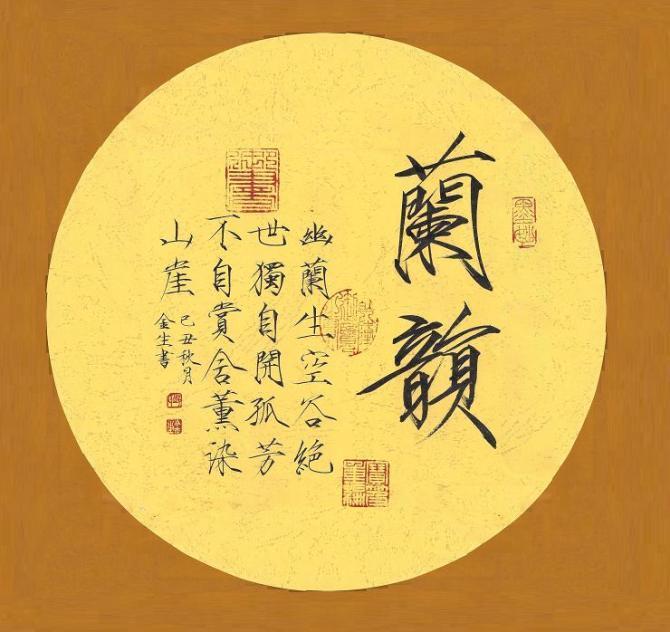 蘭韻
幽蘭生空谷絶
世獨自開孤芳
不自賞含薰染
山崖
己丑秋月
金生書